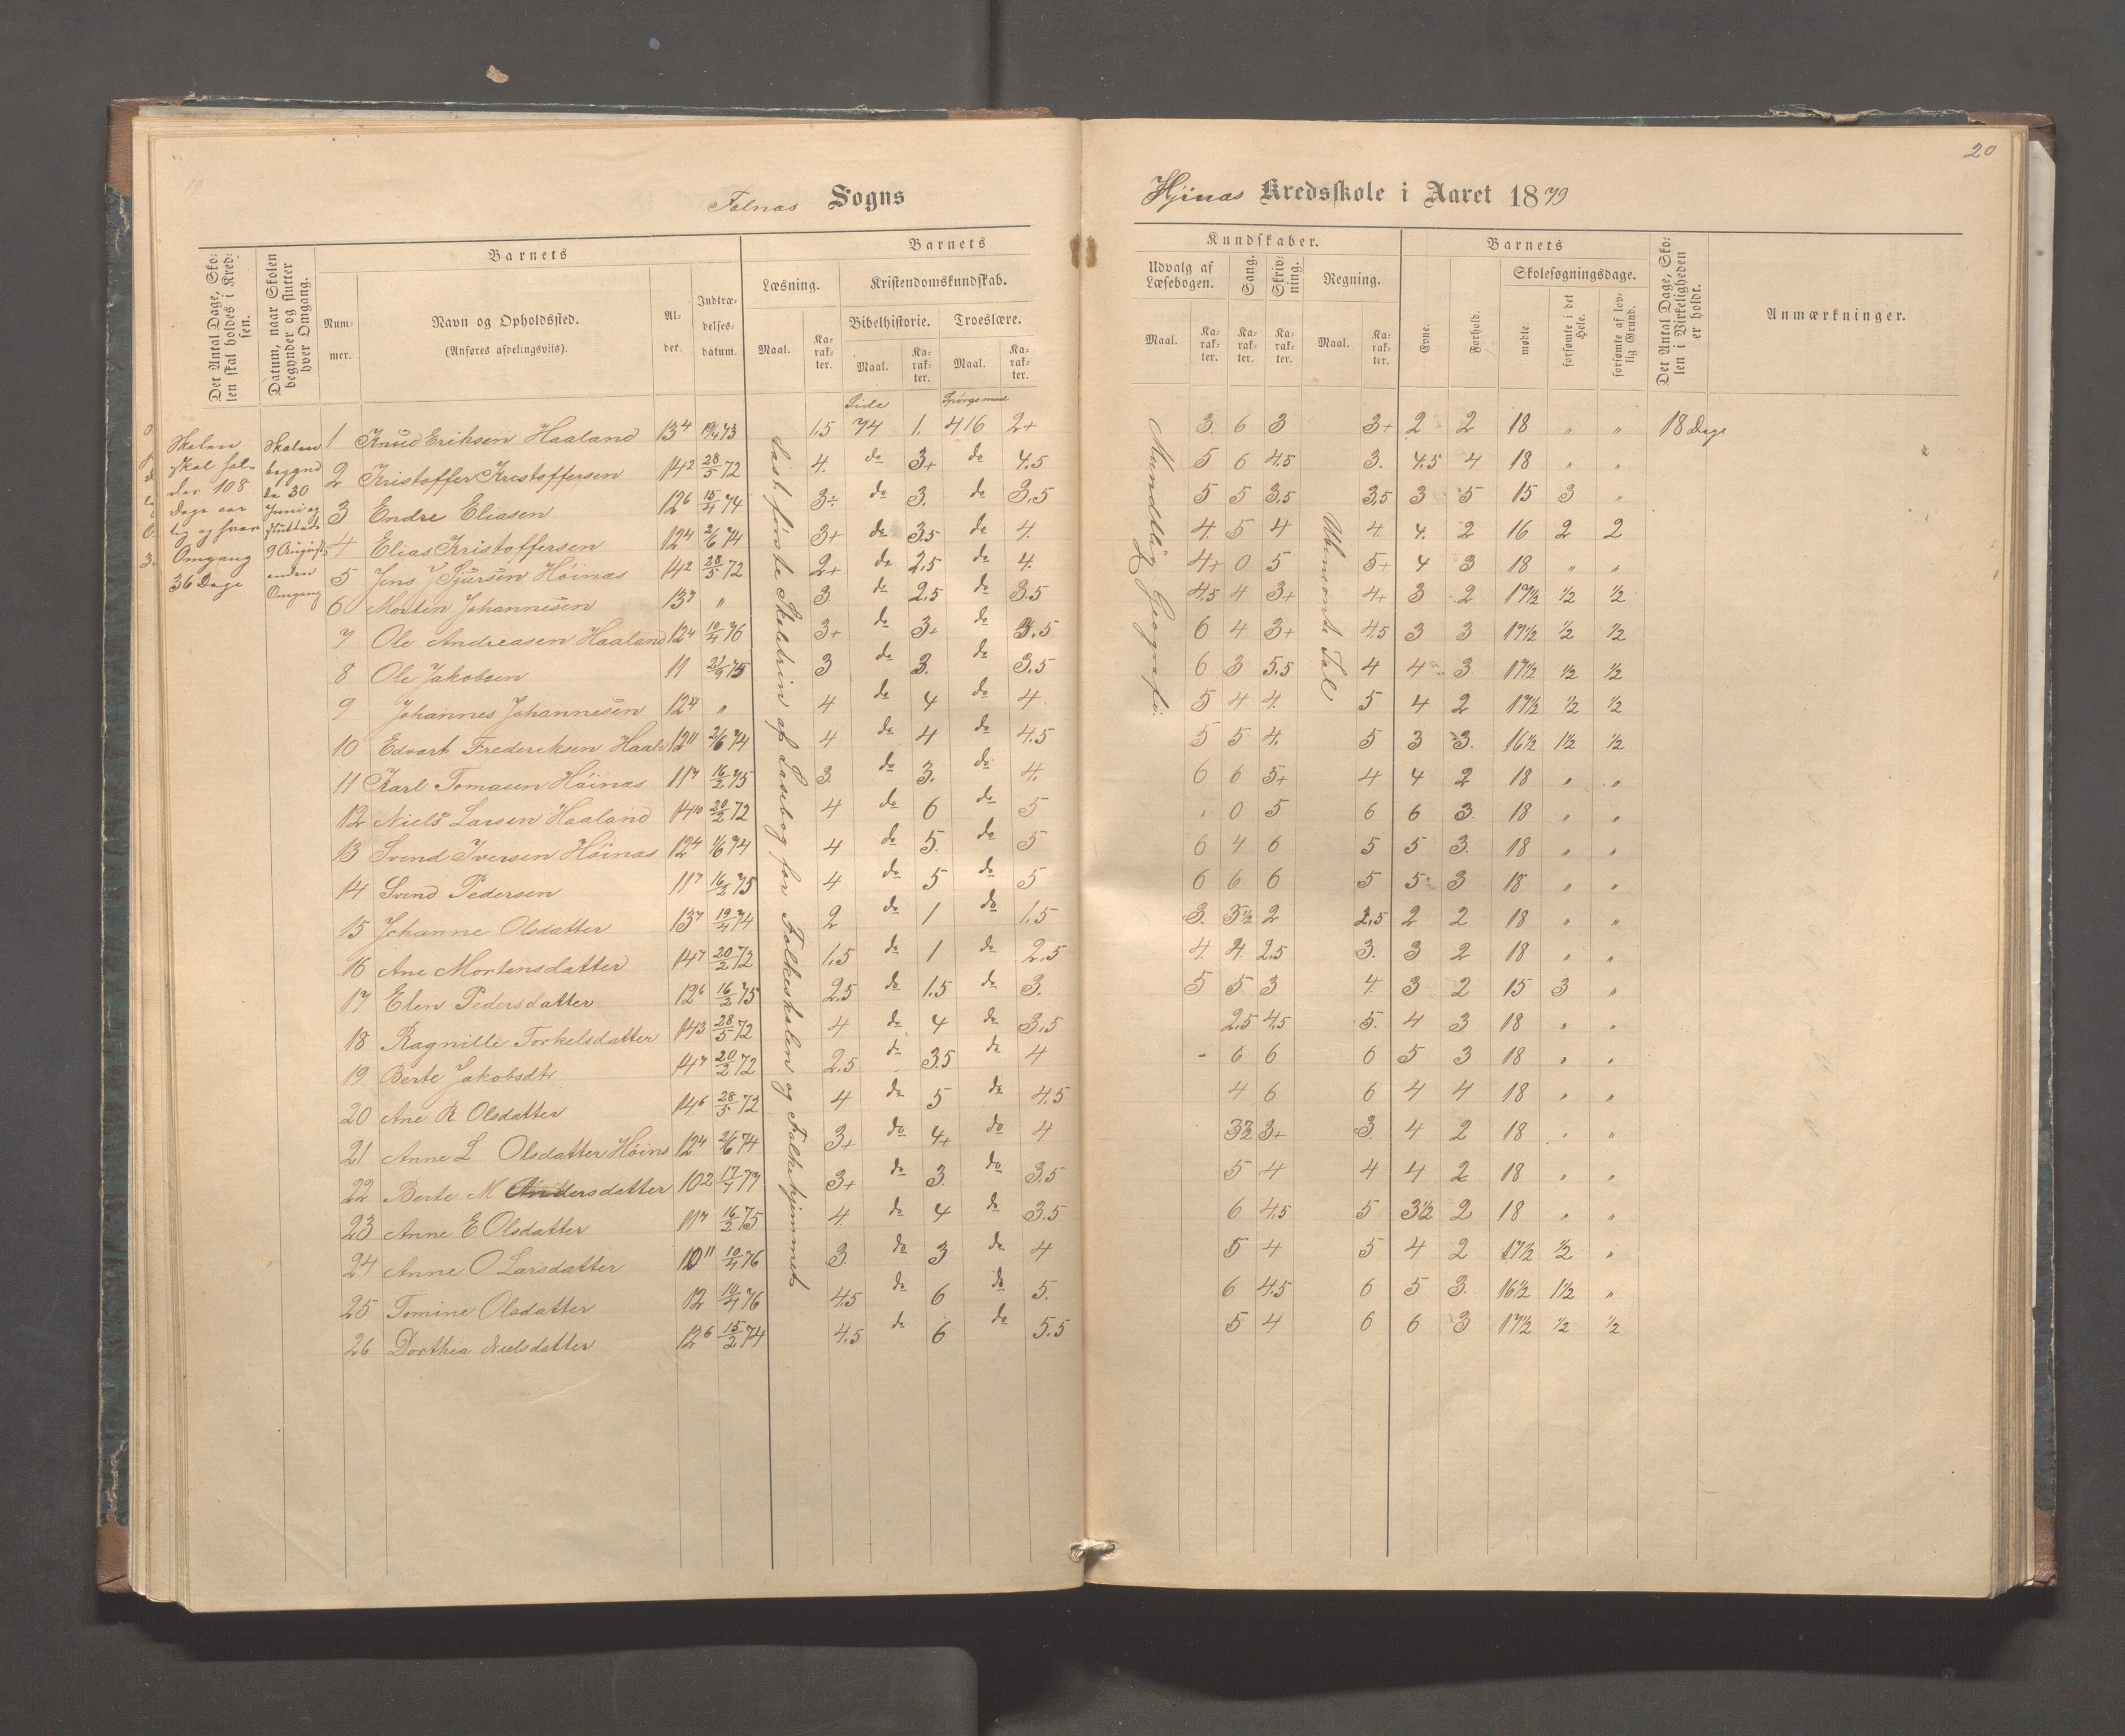 20
Falnæs Sogns
Hjinæs Kredsskole i Aaret 1879
Det Antal Dage, Skolen skal holdes i Kredsen.
Datum, naar Skolen begynder og slutter hver Omgang.
Barnets
Nummer.
Navn og Opholdssted.
(Anføres afdelingsviis).
Alder.
Indtrædelsesdatum.
Barnets
Læsning.
Maal.
Karakter.
Kristendomskundskab.
Bibelhistorie.
Troeslære.
Maal.
Karakter.
Maal.
Karakter.
Kundskaber.
Udvalg af Læsebogen.
Maal.
Karakter.
Sang.
Karakter.
Skrivning.
Karakter.
Regning.
Maal.
Karakter.
Barnets
Evne.
Forhold.
Skolesøgningsdage.
mødte.
forsømte i det Hele.
forsømte af lovlig Grund.
Det Antal Dage, Skolen i Virkeligheden er holdt.
Anmærkninger.
Skolen
skal hol-
des 108
Dage aar
lig og hver
Omgang
36 Dage
Skolen
begynd
te 30
Juni og
sluttede
9 August
anden
Omgang
Side
Spørgsmaal
Læst første Skoletrin af Læsebog for Folkeskolen og Folkehjemmet
Mundtlig Geografi
Ubenævnte Tal
1 Knud Eriksen Haaland 13 4 19/4 73 1.5 74 1. 416 2+ 3. 6 3 3+ 2 2 18 " " 18 Dage
2 Kristoffer Kristoffersen 14 2 28/5 72 4. do 3+ do 4.5 5 6 4.5 3. 4.5 4 18 " "
3 Endre Eliasen 12 6 15/4 74 3÷ do 3. do 3.5 5 5 3.5 3.5 3 5 15 3 "
4 Elias Kristoffersen 12 4 2/6 74 3+ do 3.5 do 4. 4. 5 4 4. 4. 2 16 2 2
5 Jens J Sjursen Høinæs 14 2 28/5 72 2+ do 2.5 do 4. 4+ 0 5 5+ 4 3 18 " "
6 Morten Johannesen 13 7 " 3. do 2.5 do 3.5 4.5 4 3+ 4+ 3 2 17½ ½ ½
7 Ole Andreasen Haaland 12 4 10/4 76 3+ do 3+ do 3.5 6 4 3+ 4.5 3 3 17½ ½ ½
8 Ole Jakobsen 11 21/9 75 3 do 3. do 3.5 6 3 5.5 4 4 3 17½ ½ ½
9 Johannes Johannesen 12 4 " 4 do 4 do 4 5 4 4. 5 4 2 17½ ½ ½
10 Edvart Frederiksen Haal 12 11 2/6 74 4 do 4 do 4.5 5 5 4. 5 3 3. 16½ 1½ ½
11 Karl Tomasen Høinæs 11 7 16/2 75 3. do 3. do 4. 6 6 5+ 4 4 2 18 " "
12 Niels Larsen Haaland 14 10 20/2 72 4 do 6 do 5 " 0 5 6 6 3. 18 " "
13 Svend Iversen Høinæs 12 4 1/6 74 4 do 5. do 5 6 4 6 5 5 3. 18 " "
14 Svend Pedersen 11 7 16/2 75 4 do 5 do 5 6 6 6 5 5 3 18 " "
15 Johanne Olsdatter 13 7 19/4 74 2 do 1 do 1.5 3. 3½ 2 2.5 2 2 18 " "
16 Ane Mortensdatter 14 7 20/2 72 1.5 do 1 do 2.5 4. 4. 2.5 3. 3 2 18 " "
17 Elen Pedersdatter 12 6 16/2 75 2.5 do 1.5 do 3. 5 5 3 4. 3 2 15 3 "
18 Ragnille Torkelsdatter 14 3 28/5 72 4 do 4 do 3.5 2.5 4.5 5. 4 3 18 " "
19 Berte Jakobsdtr 14 7 20/2 72 2.5 do 3.5 do 4 - 6 6 6 5 3 18 " "
20 Ane R Olsdatter 14 6 28/5 72 4 do 5 do 4.5 4 6 6 4 4 18 " "
21 Anne L Olsdatter Høins 12 4 2/6 74 3+ do 4+ do 4 3½ 3+ 3. 4 2 18 " "
22 Berte M Andersdatter 10 2 17/4 77 3+ do 3. do 3.5 5 4 4 4 2 18 " "
23 Anne E Olsdatter 11 7 16/2 75 4. do 4 do 3.5 6 4.5 5 3½ 2 18 " "
24 Anne O Larsdatter 10 11 10/4 76 3. do 3 do 4 5 4 5 4 2 17½ ½ "
25 Tomine Olsdatter 12 10/4 76 4.5 do 6 do 5. 6 4.5 6 5 3. 16½ 1½ "
26 Dorthea Nielsdatter 12 6 15/2 74 4.5 do 6 do 5.5 5 4 6 6 3 17½ ½ ½